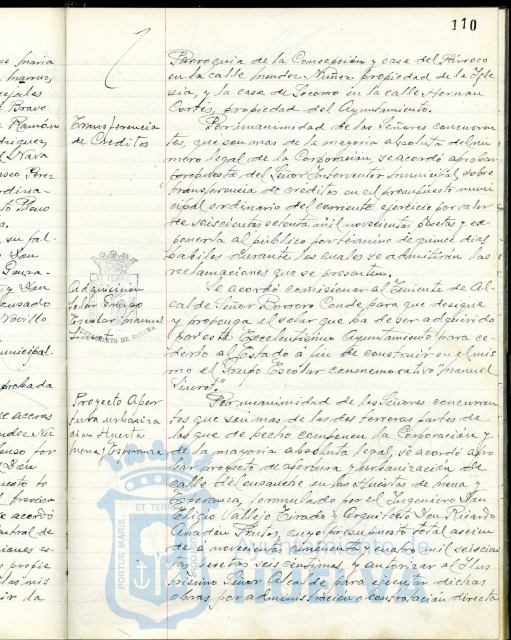 110
Parroquia de la Concepción y casa del Párroco
en la calle Mendez Nuñez propiedad de la Igle
sia, y la casa de Socorro en la calle Hernan
Cortés, propiedad del Ayuntamiento.
Transferencia
de Creditos
Por unanimidad de los Señores concurren
tes, que son mas de la mayoria absoluta del nu
mero legal de la Corporación, se acordó aprobar
propuesta del Señor Interventor Municipal sobre
transferencia de créditos en el presupuesto muni
cipal ordinario del corriente ejercicio por valor
de seiscientas setenta mil novecientas pesetas y ex
ponerla al público por término de quince dias
habiles durante los cuales se admitirán las
reclamaciones que se presenten.
Adquisicion
Solar Grupo
Escolar Manuel
Siurot
Se acordó comisionar al Teniente de Al
calde Señor Borrero Conde para que designe
y proponga el solar que ha de ser adquirido
por este Excelentisimo Ayuntamiento para ce
derlo al Estado a fin de construir en el mis
mo el Grupo Escolar conmemorativo "Manuel
Siurot"
Proyecto Aper
tura urbaniza
cion Huerta
Mena y Esperanza
Por unanimidad de los Señores concurren
tes que son mas de las dos terceras partes de
los que de hecho componen la Corporación y
de la mayoria absoluta legal, se acordó apro
bar proyecto de apertura y urbanización de
calle del ensanche en las Huertas de Mena y
Esperanza, formulado por el Ingeniero Don
Eligio Vallejo Tirado y Arquitecto Don Ricardo
Anadón Frutos, cuyo presupuesto total ascien
de a novecientas cincuenta y cuatro mil seiscien
tas pesetas seis centimos, y autorizar al Ilus
trisimo Señor Alcalde para ejecutar dichas
obras por administración o contratación directa
PORTUS MARIS
ET TERRAE